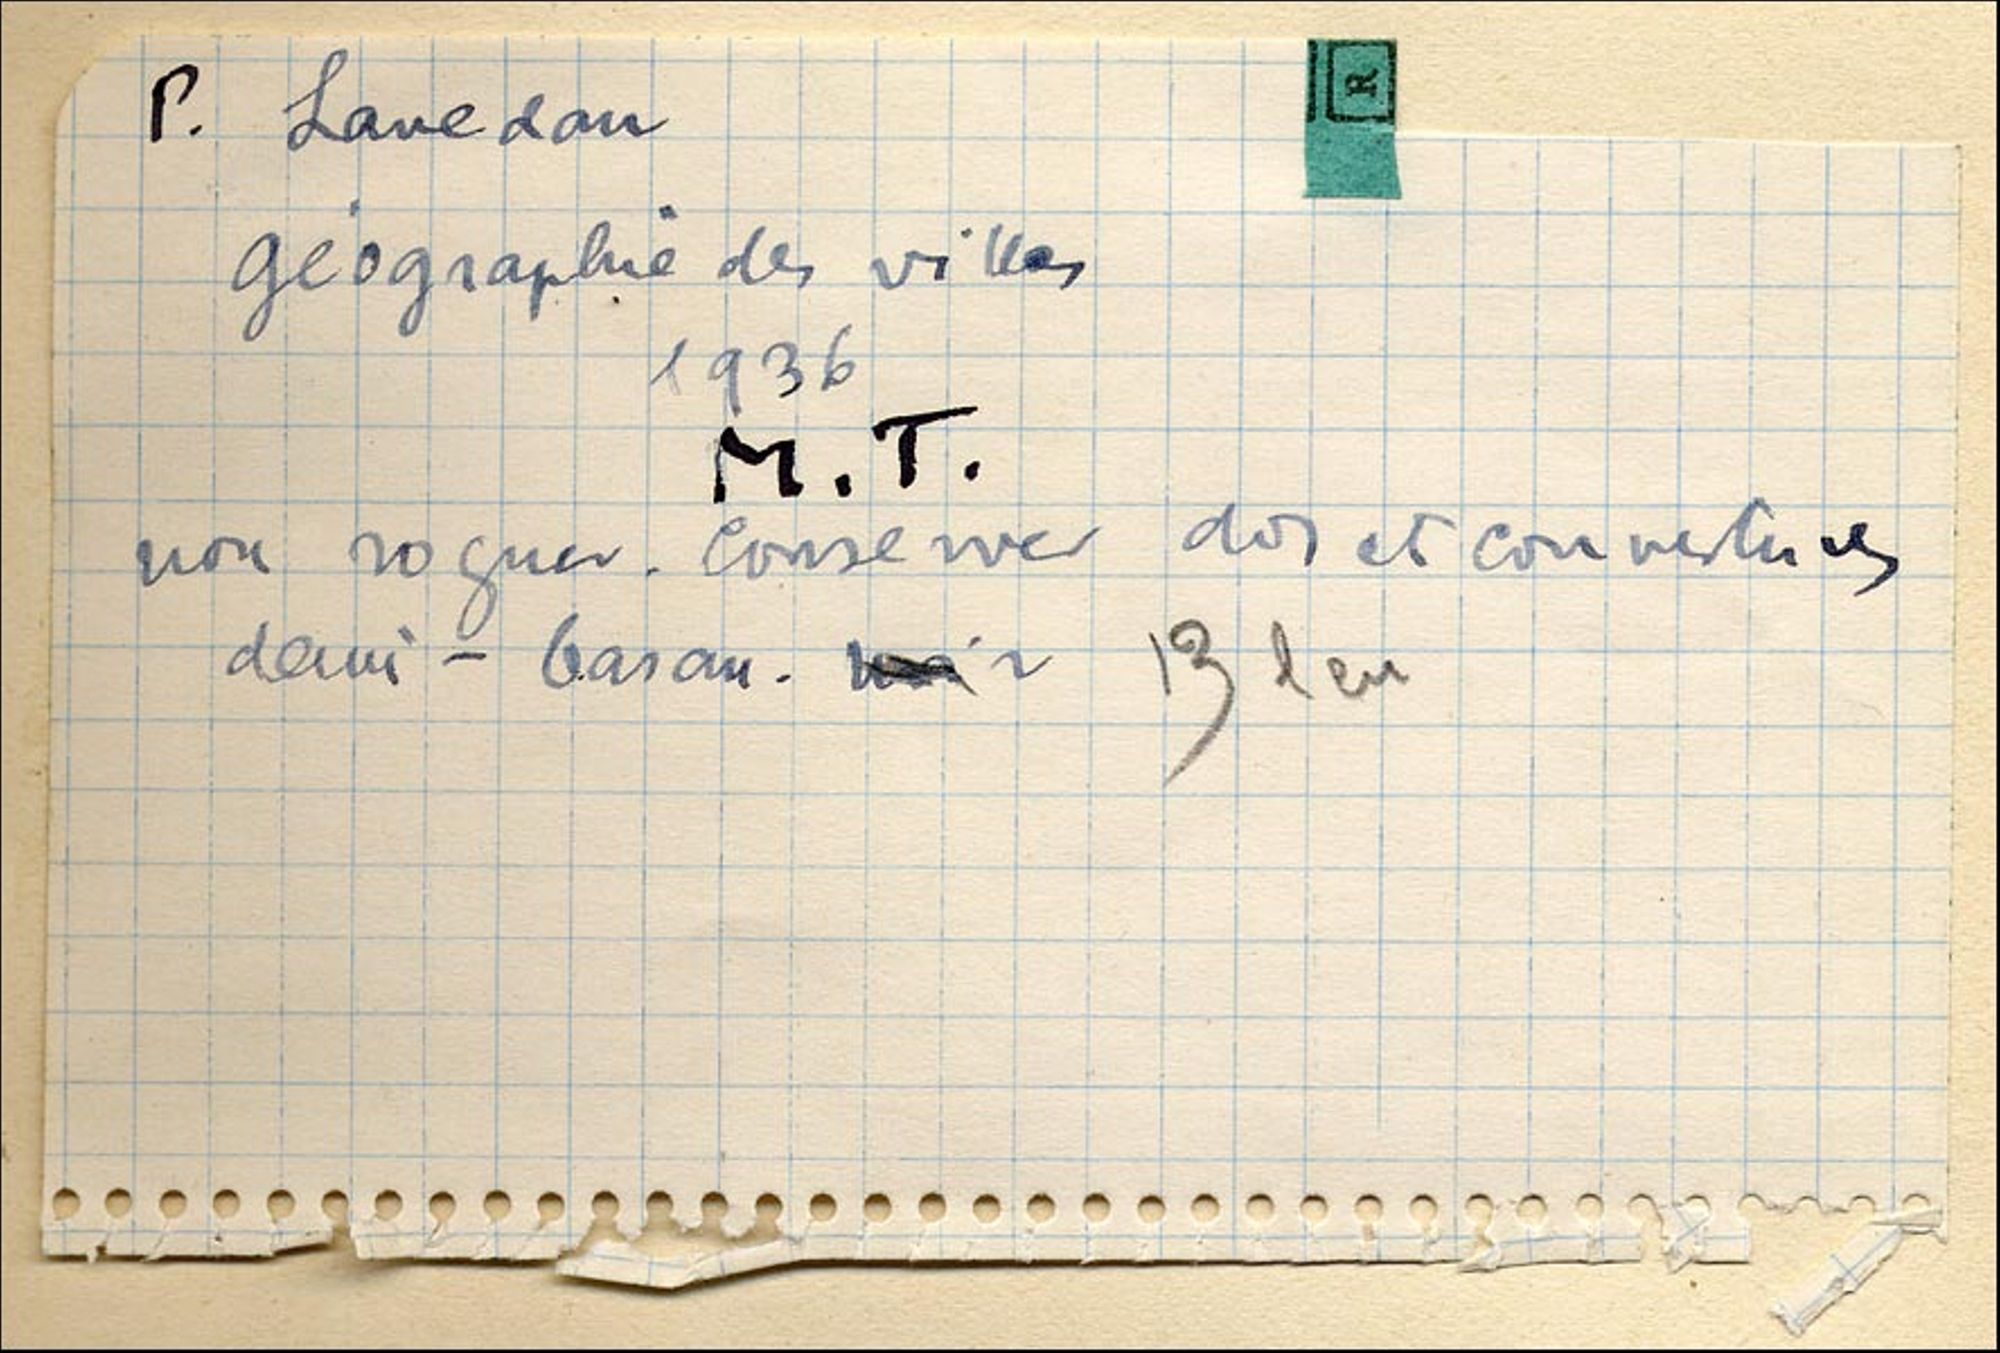 R
P. Lavedan
Géographie des villes
1936
M.T.
non rogner. Conserver dos et couvertures
demi - basan. noir 13 leu